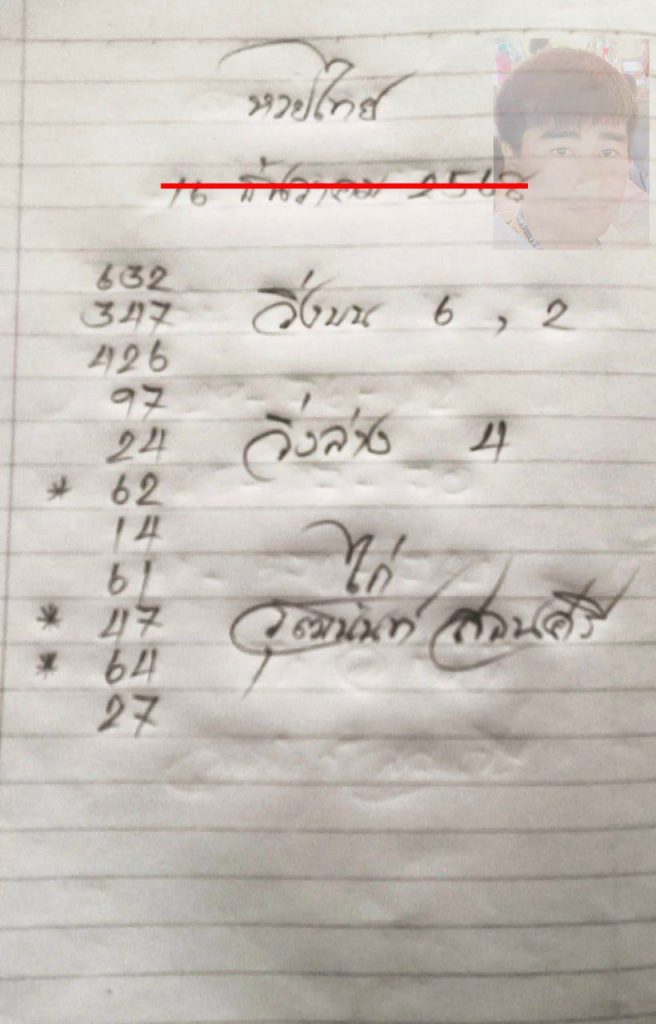 หวยไทย
16 ธันวาคม 2568
632
347 วิ่งบน 6 , 2
426
97
24 วิ่งล่าง 4
* 62
14
61 ไก่
* 47 วุฒินันท์ สอนศรี
* 64
27